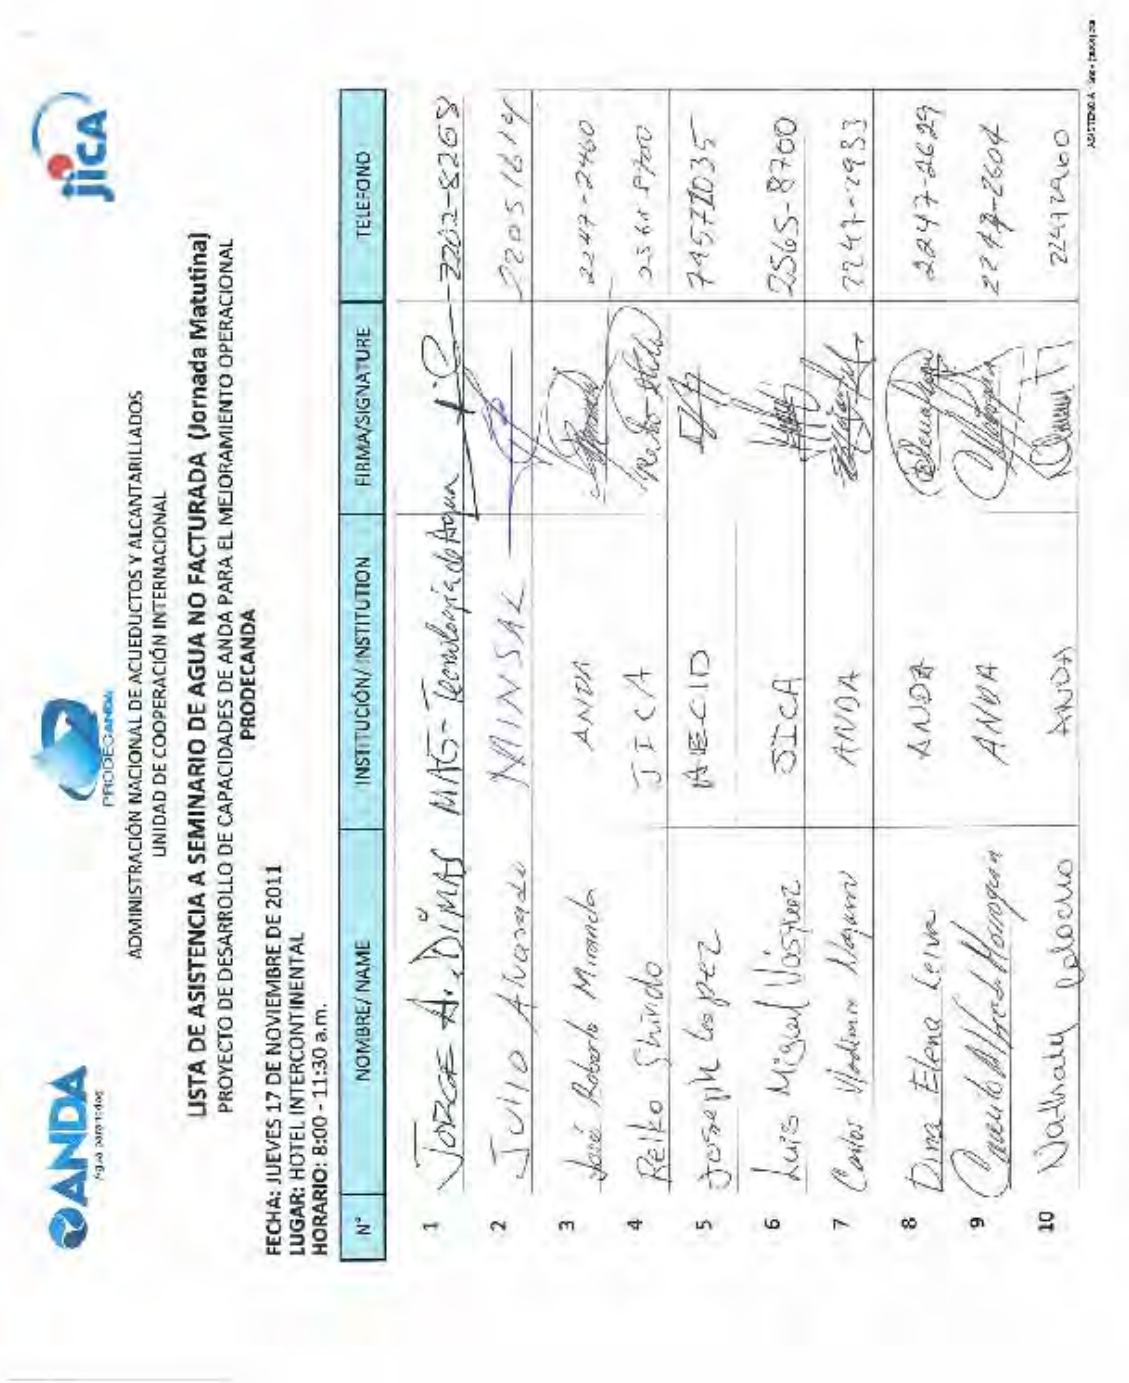 ANDA
Agua para todos
PRODECANDA
jica
ADMINISTRACIÓN NACIONAL DE ACUEDUCTOS Y ALCANTARILLADOS
UNIDAD DE COOPERACIÓN INTERNACIONAL
LISTA DE ASISTENCIA A SEMINARIO DE AGUA NO FACTURADA (Jornada Matutina)
PROYECTO DE DESARROLLO DE CAPACIDADES DE ANDA PARA EL MEJORAMIENTO OPERACIONAL
PRODECANDA
FECHA: JUEVES 17 DE NOVIEMBRE DE 2011
LUGAR: HOTEL INTERCONTINENTAL
HORARIO: 8:00 - 11:30 a.m.
N° NOMBRE/ NAME INSTITUCIÓN/ INSTITUTION FIRMA/SIGNATURE TELEFONO
1 JORGE A. DIMAS MAG - Tecnología de Agua 2202-8268
2 Julio Alvarado MINSAL 22051614
3 José Roberto Miranda ANDA 2247-2460
4 Reiko Shindo JICA 2565 8700
5 Joseph Lopez AECID 74571035
6 Luis Miguel Vásquez JICA 2565-8700
7 Carlos Vladimir ANDA 2247-2933
8 Dina Elena Leiva ANDA 2247-2629
9 Alfredo ANDA 2247-2604
10 Nathaly ANDA 22472960